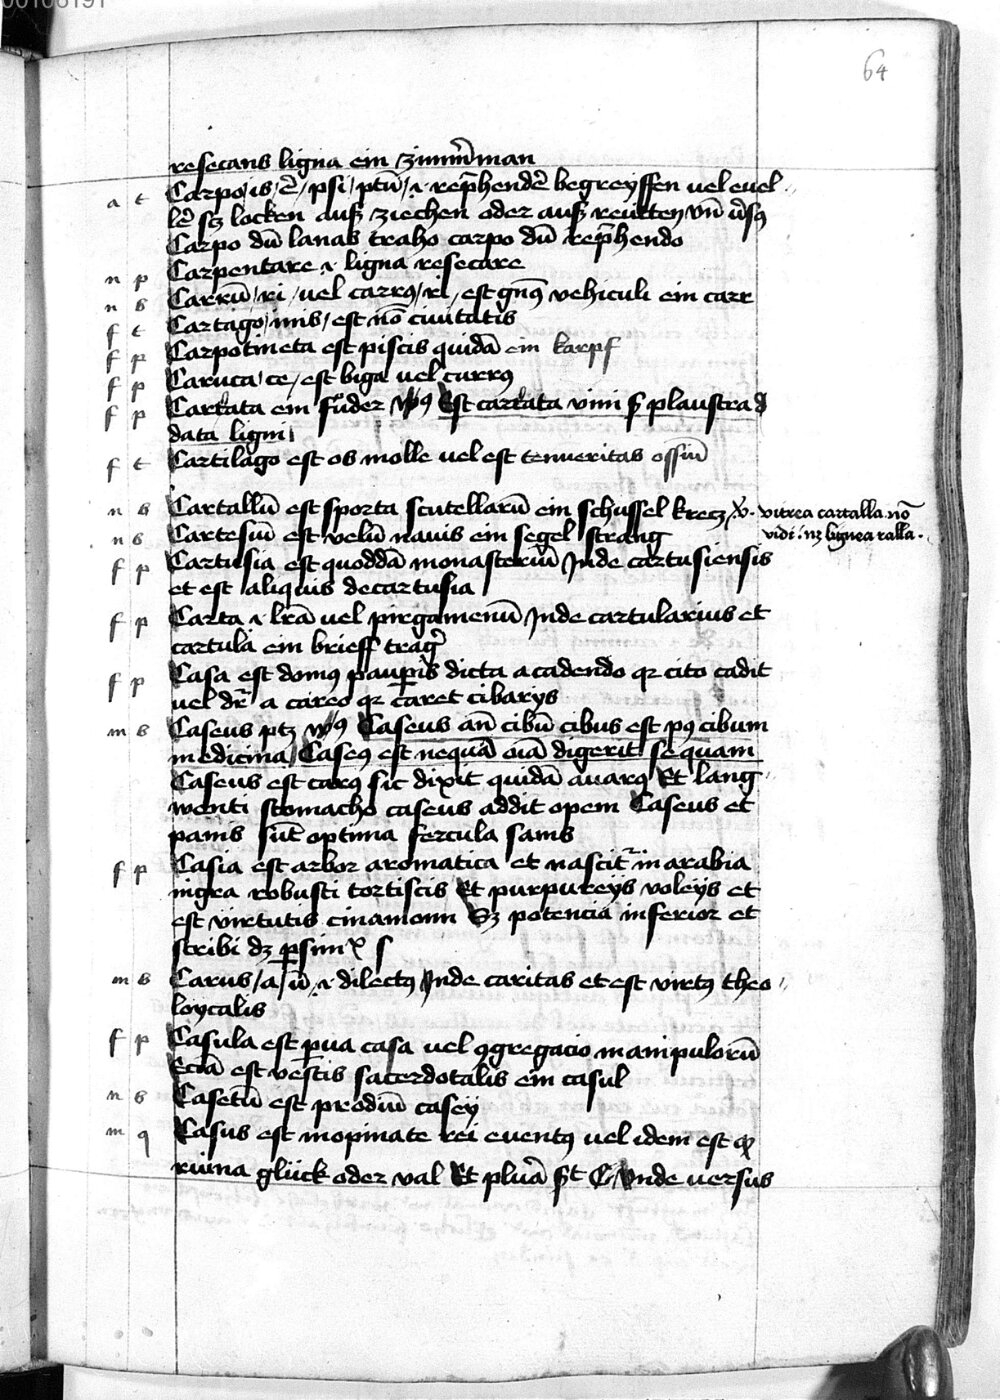 64
resecans ligna ein zimmerman
a t Carpo / is / ē / psi / ptū / ɿ rep̄hendē begreyffen uel euel
lē sʒ locken auß ziechen oder auß reütten vn̄ v̄sꝫ
Carpo dū lanas traho carpo dū rep̄hendo
n p Carpentare ɿ ligna resecare
n ß Carrū / ri / uel carrꝰ / ri / est gn̄ꝰ vehiculi ein carr
f t Cartago / inis / est nō ciuitatis
f p Carpotineta est piscis quidā ein karpf
f p Caruca / ce / est biga uel currꝰ
f p Carrata ein fůder Est carrata vini s̄ plaustra
data ligni
f t Cartilago est os molle uel est teneritas ossiū
n ß Cartallū est sporta scutellarū ein schussel krecz v̓. vitrea cartalla nō
vidi nʒ lignea ralla.
n ß Cartesiū est velū nauis ein segel strang
f p Cartusia est quoddā monasteriū Inde cartusiensis
et est aliquis decartusia
f p Carta ɿ lr̄a uel pirgamenū Inde cartularius et
cartula ein brieff trag̓
f p Casa est domꝰ paup̄is dicta a cadendo qꝛ cito cadit
uel dr̄ a careo qꝛ caret cibarijs
m ß Caseus ptʒ Caseus an̄ cibū cibus est pꝰ cibum
medicina Caseꝰ est nequā oīa digerit se quam
Caseus est carꝰ sic dixit quidā auarꝰ Et lang
wenti stomacho caseus addit opem Caseus et
panis sūt optima fercula sanis
f p Casia est arbor aromatica et nascit᷑ in arabia
nigra robusti tortiscis Et purpureijs voleijs et
est virtutis cinamomi Sʒ potencia inferior et
scribi dʒ ꝑ simpˣ s
m ß Carus / a / ū / ɿ dilectꝰ Inde caritas et est virtꝰ theo
loycalis
f p Casula est ꝑua casa uel ꝯgregacio manipulorū
Eciā est vestis sacerdotalis ein casul
n ß Casetū est prediū casey
m q Casus est inopinate rei euentꝰ uel idem est ꝙ
ruina glück oder val Et plurā Vnde uersus